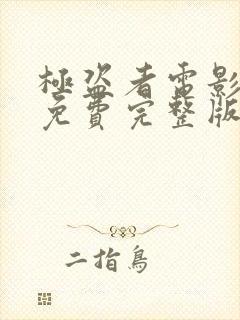 極盜者電影
免費完整版
二指鳥